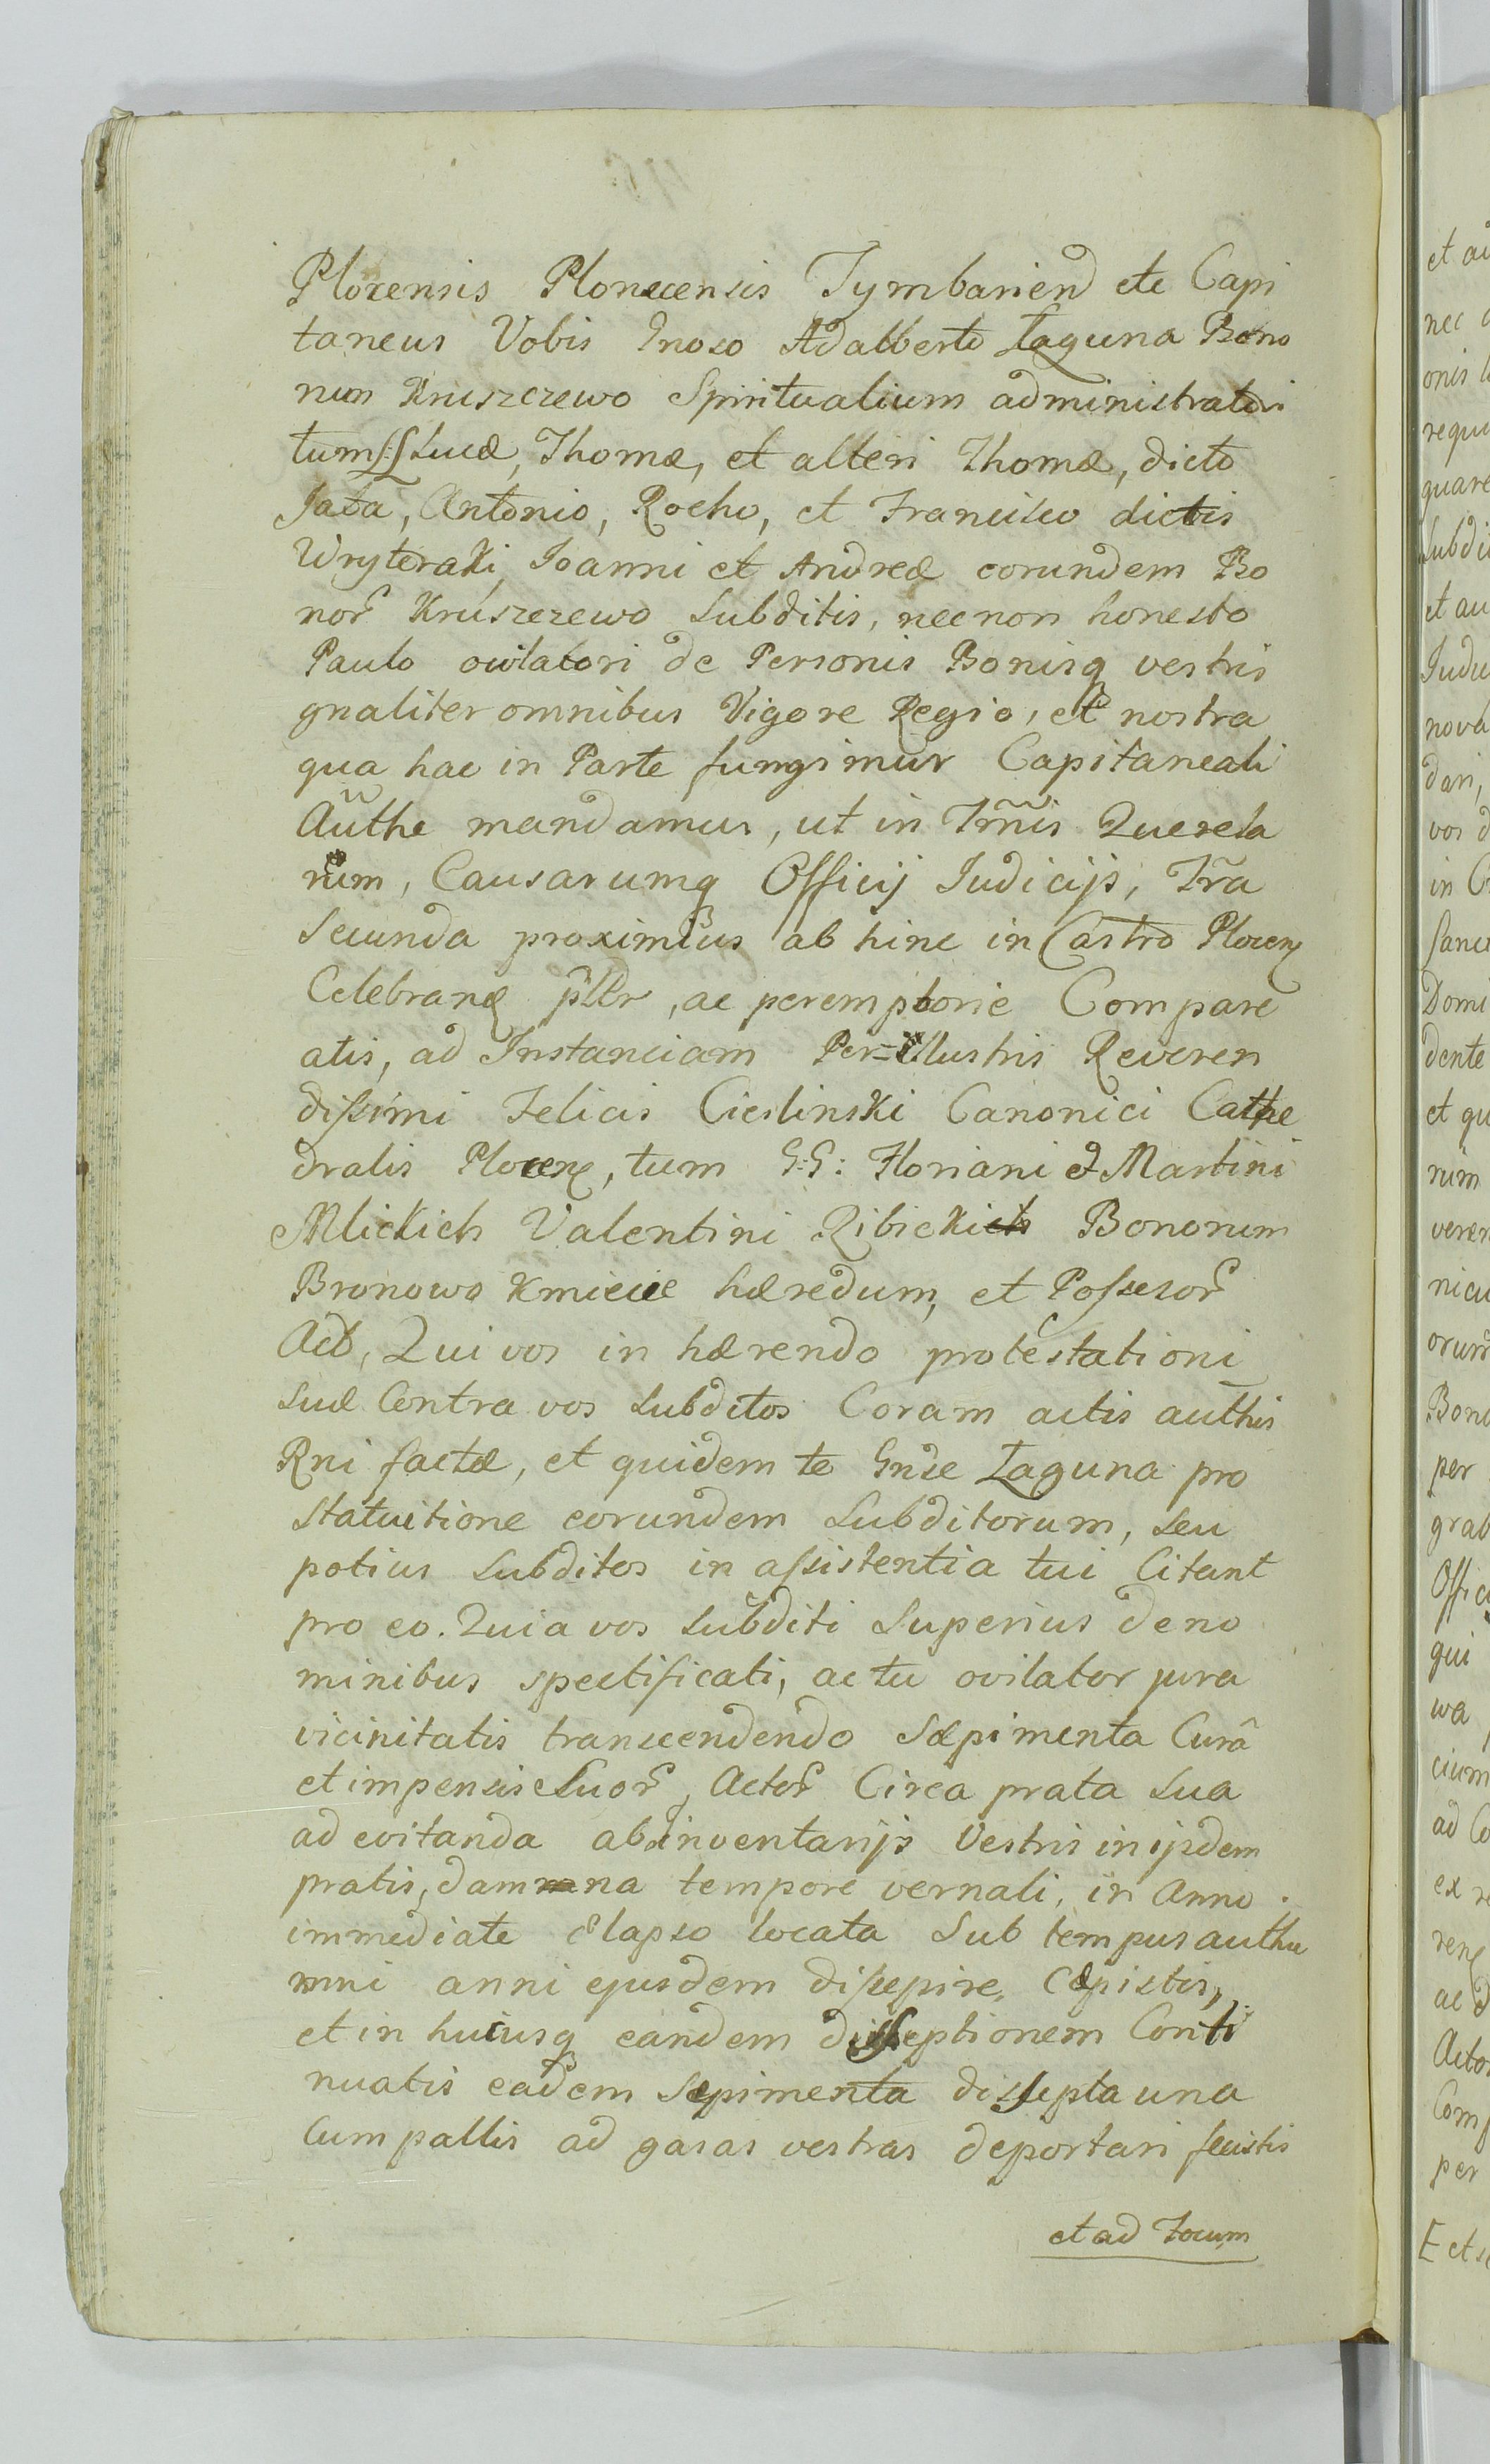 Plocensis Plonecensis Tymbarien etc Capi
taneus Vobis Gnoso Adalberto Łaguna Bono
rum Kruszczewo Spiritualium administratori
tum Lucæ, Thomæ, et alteri Thomæ, dicto
Jata, Antonio, Rocho, et Francisco dictis
Wryteraki, Joanni et Andreæ eorundem Bo
nor Kruszczewo Subditis, necnon honesto
Paulo ovilatori de Personis Bonisq vestris
gnaliter omnibus Vigore Regio, et nostra
qua hac in Parte fungimur Capitaneali
Authe mandamus, ut in Trmis Querela
rum, Causarumq Officij Judicijs, Fra
Secunda proximius ab hinc in Castro Plocen
Celebran pltr, ac peremptorie Compare
atis, ad Instanciam Per-Illustris Reveren
dissimi Felicis Cieslinski Canonici Cathe
dralis Plocen, tum G:G: Floriani et Martini
Mlickich Valentini Ribickich Bonorum
Bronowo Kmiecie hæredum, et Possesor
Act, Qui vos in hærendo protestationi
suæ Contra vos Subditos Coram actis authis
Rni factæ, et quidem te Gnse Łaguna pro
statuitione eorundem Subditorum, seu
potius Subditos in assistentia tui Citant
pro eo. Quia vos subditi Superius de no
minibus spectificati, ac tu ovilator jura
vicinitatis transcendendo Sæpimenta Cura
et impensis Suor, Actor Circa prata sua
ad evitanda ab inventarijs Vestris in ijsdem
pratis, damna tempore vernali, in Anno
immediate Elapso locata Sub tempus authu
mni anni ejusdem dissepire, Cæpistis,
et in hucusq eandem disseptionem Conti
nuatis eadem Sepimenta dissepta una
Cum pallis ad gasas vestras deportari fecistis
et ad Focum